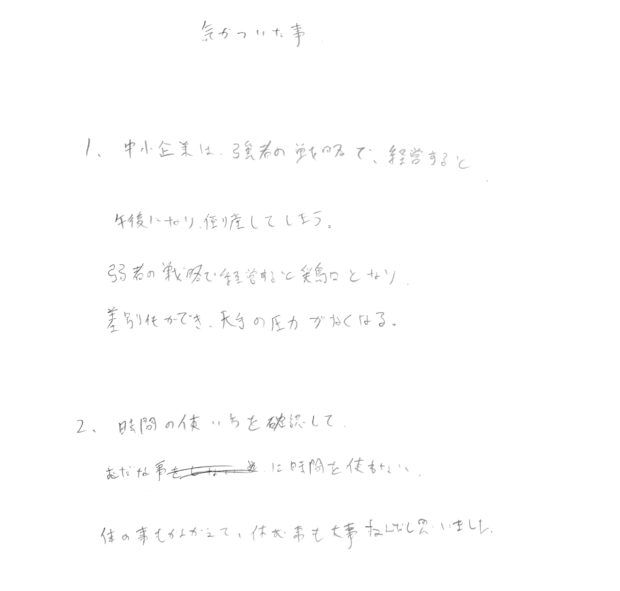 気がついた事
1、中小企業は、強者の戦略で、経営すると
午後になり、倒産してしまう。
弱者の戦略で経営すると となり、
差別化ができ、大手の圧力がなくなる。
2、時間の使い方を確認して
むだな事 に時間を使わない。
体の事もかんがえて、休む事も大事 思いました。